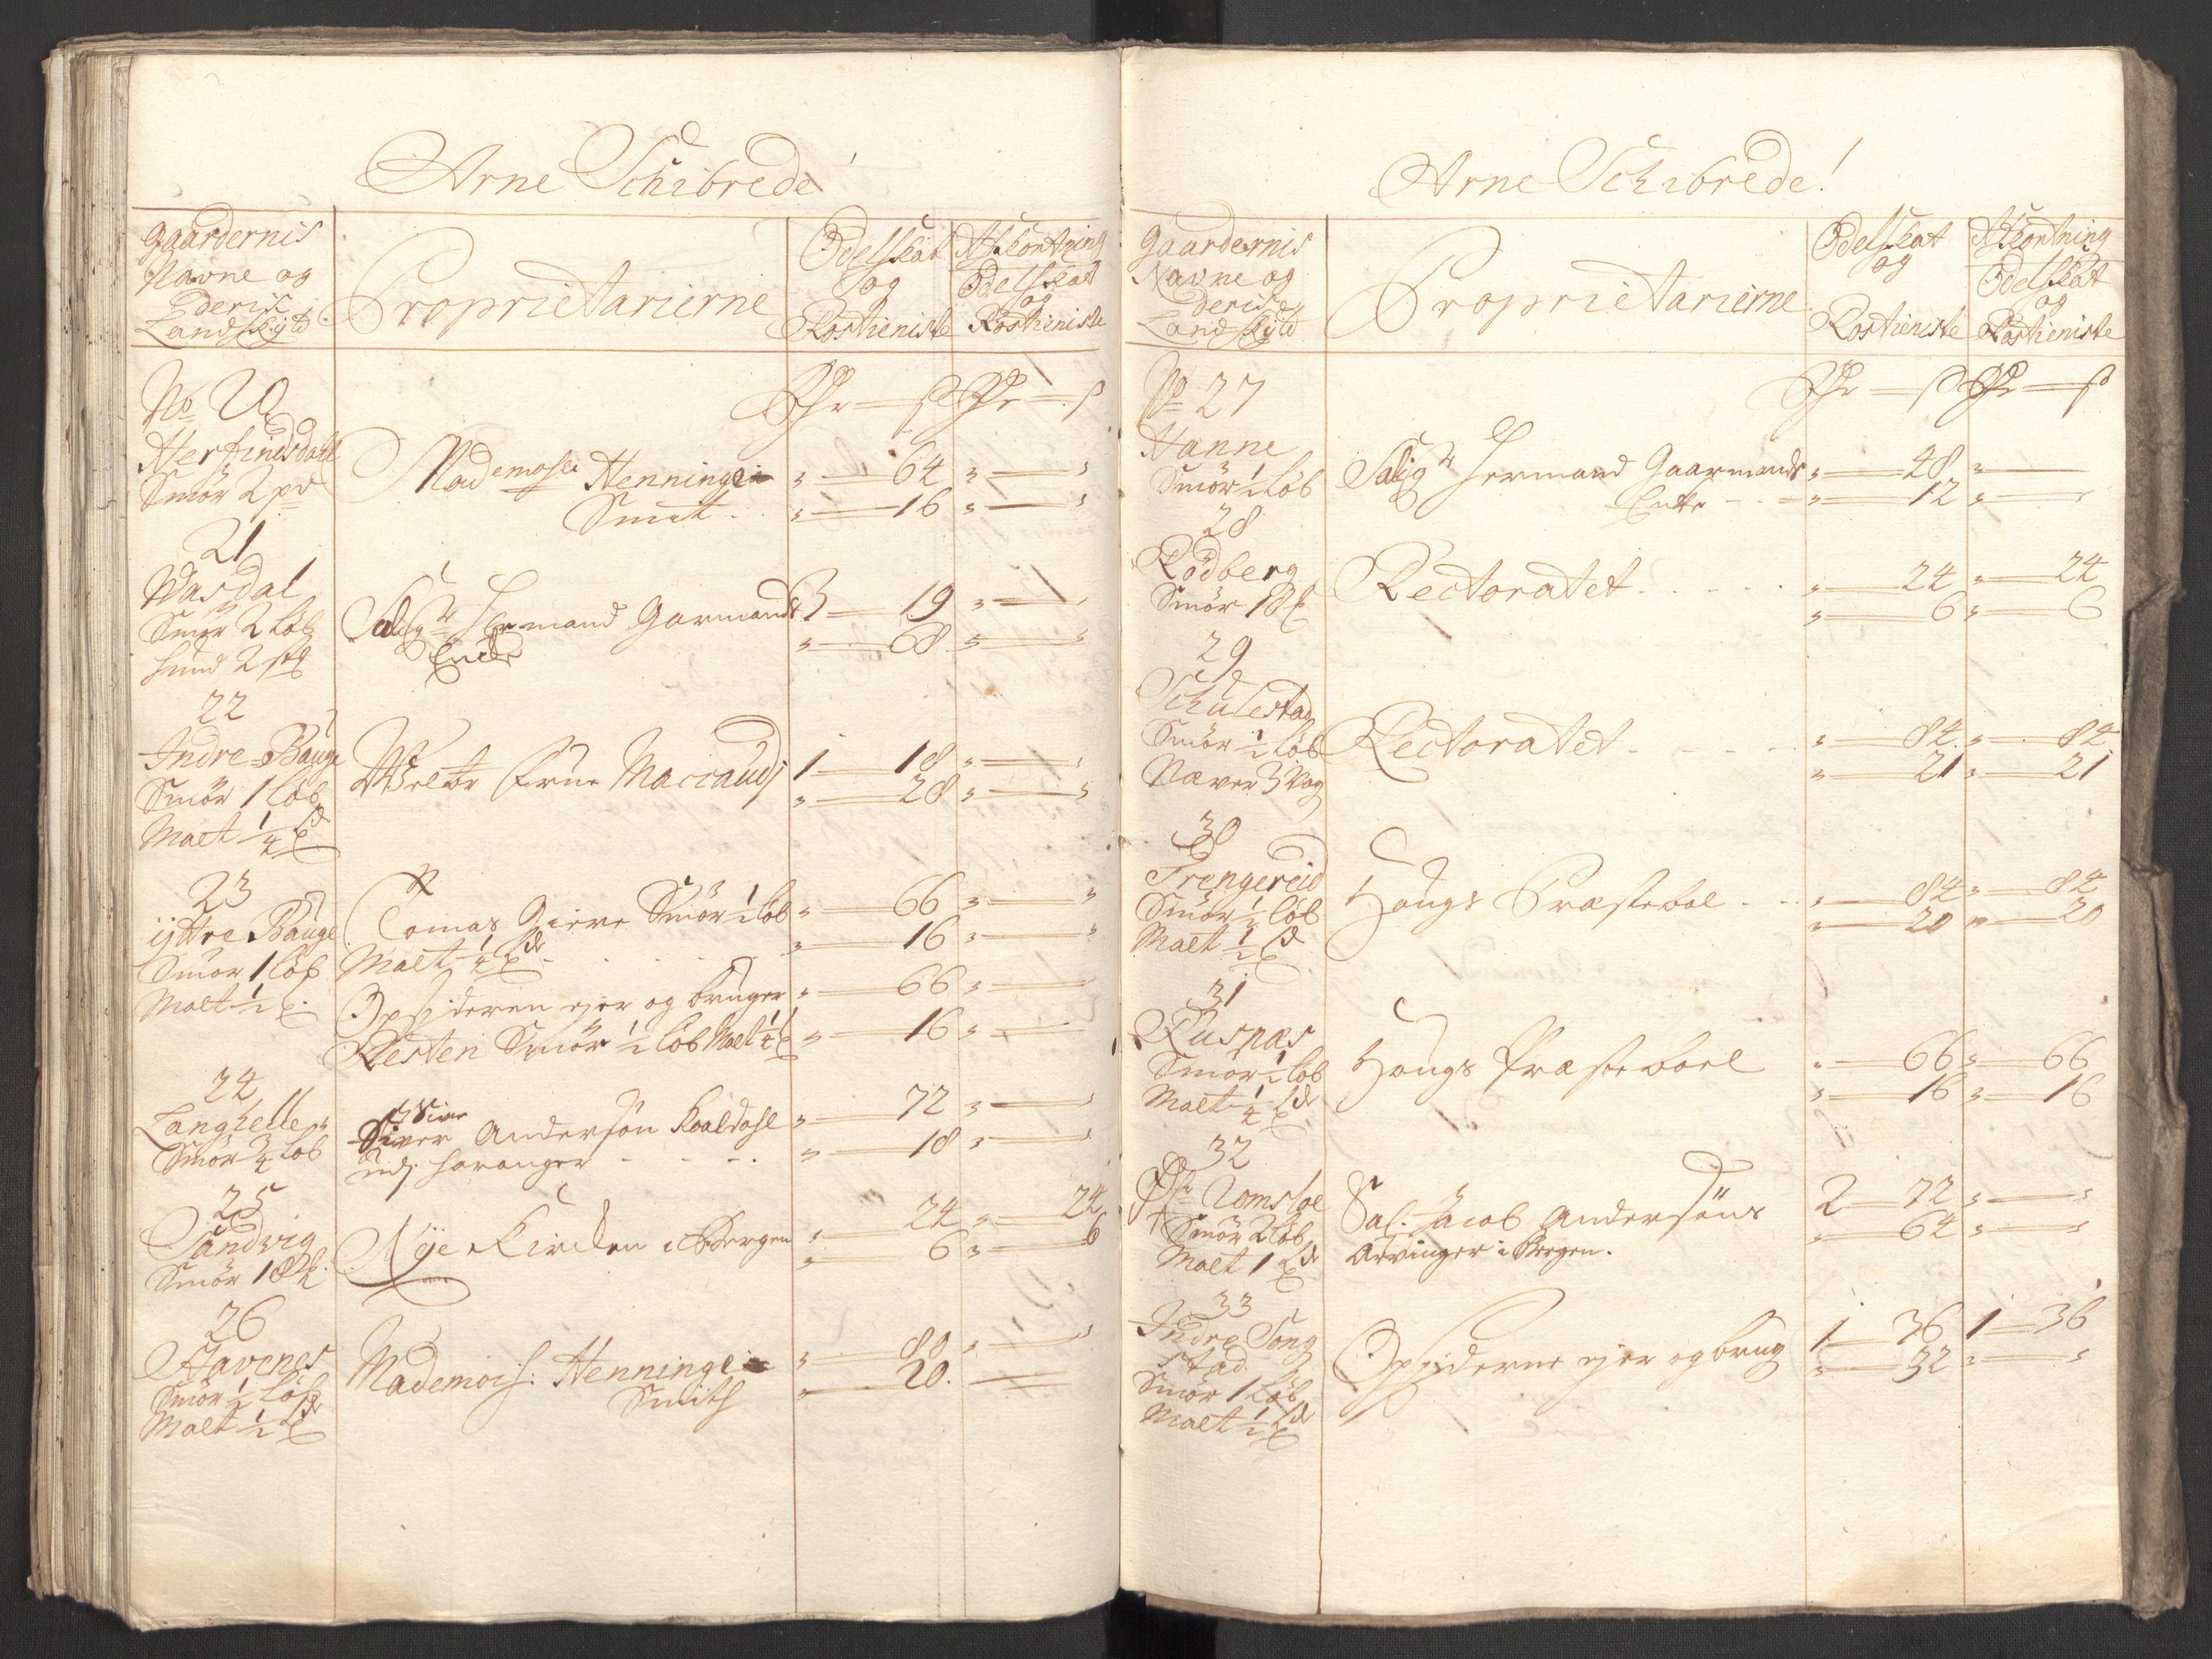 Arne Schibrede
Gaardernis
Navne og
deris
Landskyld
Proprietarierne
Odelskat
og
Rostieniste
Afkortning
Odelskat
og
Rostieniste
No 20
Herfindsdall
Smör 2 pd
Mademosel Henninge
Smit
" 64 " "
" 16 " "
21
Wasdal
Smör 2 Löb
hund 2 stk
Salig Hermand Garmands
Encke
3 19 " "
" 68 " "
22
Indre Bauge
Smör 1 Löb
Malt 1/4
Frue Maccaudj
1 18 " "
" 28 " "
23
ijttre Bauge
Smör 1 Löb
Malt 1/2
Tomas Giere Smör 1/2 Löb
Malt 1/4
" 66 " "
" 16 " "
Opsideren ejer og bruger
Resten Smör 1/2 Löb Malt 1/4
" 66 " "
" 16 " "
24
Langhelle
Smör 3/4 Löb
Siver Andersøn Kaaldahl
udj. Haranger
" 72 " "
" 18 " "
25
Sandvig
Smör 18
Nÿe Kircken i Bergen
" 24 " 24
" 6 " 6
26
Havenes
Smör 1/2 Löb
Malt 1/2
Mademois: Henninge
Smith
" 80 " "
" 20
Arne Schibrede!
Gaardernis
Navne og
deris
Landskyld
Proprietarierne
Odelskat
og
Rostieniste
Afkortning
Odelskat
og
Rostieniste
No 27
Hanne
Smör 1/2 Löb
Salig Hermand Gaarmands
Encke
" 48 "
" 12 " "
28
Rödberg
Smör 18
Rectoratet
" 24 " 24
" 6 " 6
29
Schulestad
Smör 1/2 Löb
Næver 3 Vog
Rectoratet
" 84 " 84
" 21 " 21
30
Trengereid
Smör 1/2 Löb
Malt 1/2
Hougs Præstebol
" 84 " 84
" 20 " 20
31
Risnæs
Smör 1/2 Löb
Malt 1/4
Hougs Præsteboel
" 66 " 66
" 16 " 16
32
Romsloe
Smör 2 Löb
Malt 1
Sal. Jacob Andersöns
Arvinger i Bergen.
2 72 " "
" 64 " "
33
Indre Song
stad
Smör 1 Löb
Malt 1/2
Opsiderne ejer og brug
1 36 1 36
" 32 " "